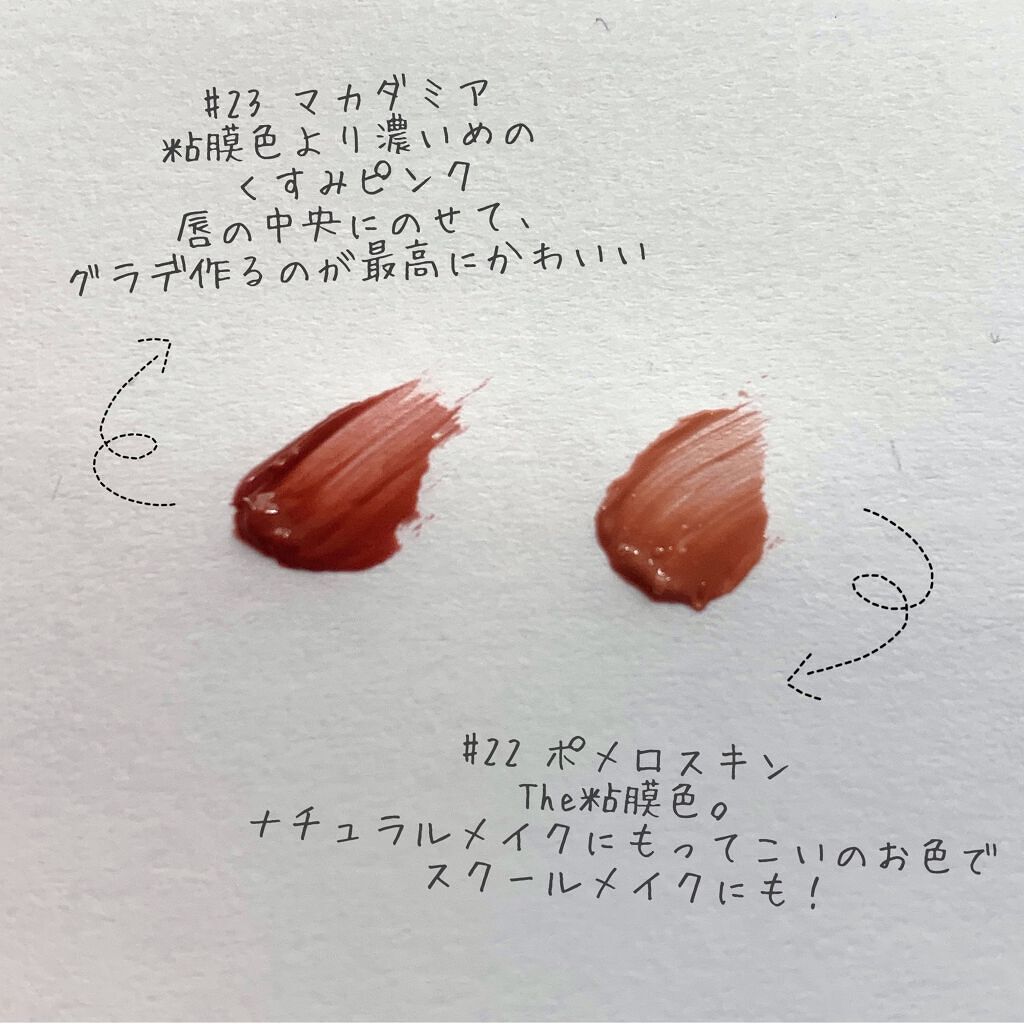 #23 マカダミア
粘膜色より濃いめの
くすみピンク
唇の中央にのせて、
グラデ作るのが最高にかわいい
#22 ポメロスキン
The粘膜色。
ナチュラルメイクにもってこいのお色で
スクールメイクにも!